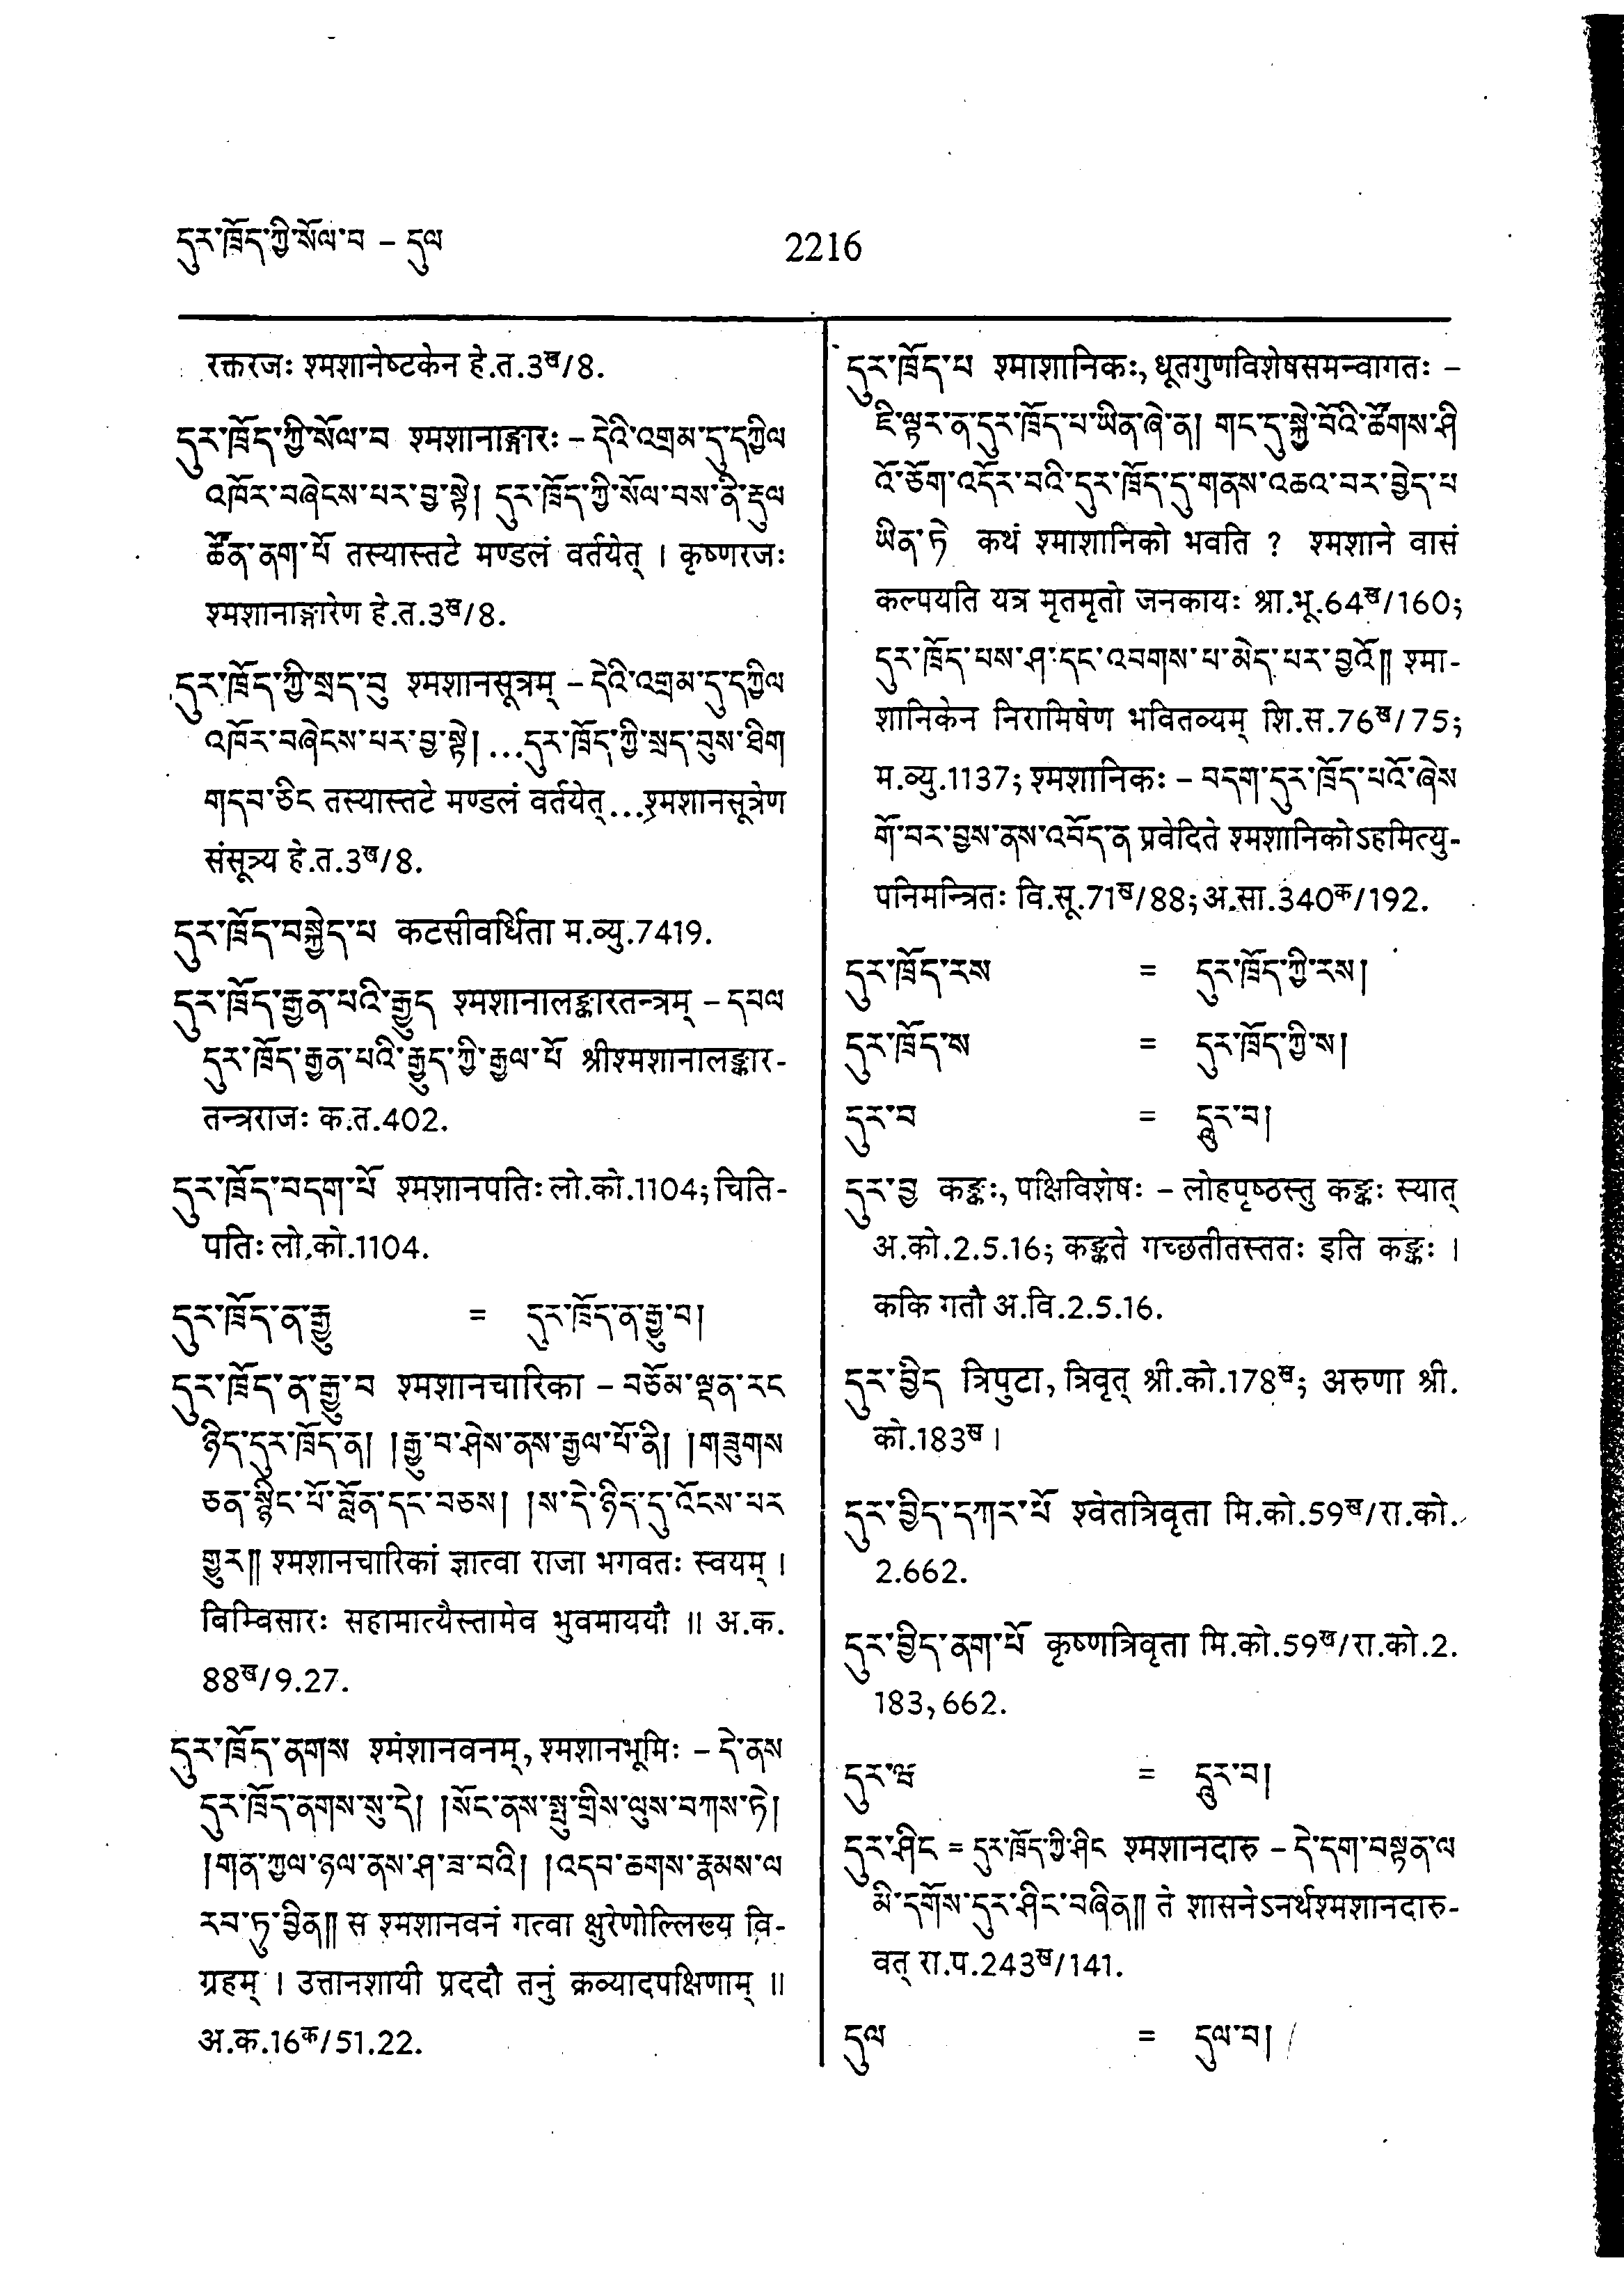 དུར་ཁྲོད་ཀྱི་སོལ་བ – དུལ
2216
रक्तरजः श्मशानेष्टकेन हे.त.3ख/8.
དུར་ཁྲོད་ཀྱི་སོལ་བ श्मशानाङ्गारः – དེའི་འགྲམ་དུ་དཀྱིལ
འཁོར་བཞེངས་པར་བྱ་སྟེ། དུར་ཁྲོད་ཀྱི་སོལ་བས་ནི་རྡུལ
ཚོན་ནག་པོ तस्यास्तटे मण्डलं वर्तयेत् । कृष्णरजः
श्मशानाङ्गारेण हे.त.3ख/8.
དུར་ཁྲོད་ཀྱི་སྲད་བུ श्मशानसूत्रम् – དེའི་འགྲམ་དུ་དཀྱིལ
འཁོར་བཞེངས་པར་བྱ་སྟེ། ...དུར་ཁྲོད་ཀྱི་སྲད་བུས་ཐིག
གདབ་ཅིང तस्यास्तटे मण्डलं वर्तयेत्...श्मशानसूत्रेण
संसूत्र्य हे.त.3ख/8.
དུར་ཁྲོད་བསྐྱེད་པ कटसीवर्धिता म.व्यु.7419.
དུར་ཁྲོད་རྒྱན་པའི་རྒྱུད श्मशानालङ्कारतन्त्रम् – དཔལ
དུར་ཁྲོད་རྒྱན་པའི་རྒྱུད་ཀྱི་རྒྱལ་པོ श्रीश्मशानालङ्कार-
तन्त्रराजः क.त.402.
དུར་ཁྲོད་བདག་པོ श्मशानपतिः लो.को.1104; चिति-
पतिः लो.को.1104.
དུར་ཁྲོད་ན་རྒྱུ = དུར་ཁྲོད་ན་རྒྱུ་བ།
དུར་ཁྲོད་ན་རྒྱུ་བ श्मशानचारिका – བཅོམ་ལྡན་རང
ཉིད་དུར་ཁྲོད་ན། །རྒྱུ་བ་ཤེས་ནས་རྒྱལ་པོ་ནི། །གཟུགས
ཅན་སྙིང་པོ་བློན་དང་བཅས། །ས་དེ་ཉིད་དུ་འོངས་པར
གྱུར༎ श्मशानचारिकां ज्ञात्वा राजा भगवतः स्वयम् ।
विम्विसारः सहामात्यैस्तामेव भुवमाययौ ॥ अ.क.
88ख/9.27.
དུར་ཁྲོད་ནགས श्मंशानवनम्, श्मशानभूमिः – དེ་ནས
དུར་ཁྲོད་ནགས་སུ་དེ། །སོང་ནས་སྤུ་གྲིས་ལུས་བཀས་ཏེ།
།གན་ཀྱལ་ཉལ་ནས་ཤ་ཟ་བའི། །འདབ་ཆགས་རྣམས་ལ
རབ་ཏུ་བྱིན༎ स श्मशानवनं गत्वा क्षुरेणोल्लिख्य वि-
ग्रहम् । उत्तानशायी प्रददौ तनुं क्रव्यादपक्षिणाम् ॥
अ.क.16क/51.22.
དུར་ཁྲོད་པ श्माशानिकः, धूतगुणविशेषसमन्वागतः –
ཇི་ལྟར་ན་དུར་ཁྲོད་པ་ཡིན་ཞེ་ན། གང་དུ་སྐྱེ་བོའི་ཚོགས་ཤི
འོ་ཅོག་འདོར་བའི་དུར་ཁྲོད་དུ་གནས་འཆའ་བར་བྱེད་པ
ཡིན་ཏེ कथं श्माशानिको भवति ? श्मशाने वासं
कल्पयति यत्र मृतमृतो जनकायः श्रा.भू.64ख/160;
དུར་ཁྲོད་པས་ཤ་དང་འབགས་པ་མེད་པར་བྱའོ༎ श्मा-
शानिकेन निरामिषेण भवितव्यम् शि.स.76ख/75;
म.व्यु.1137; श्मशानिकः – བདག་དུར་ཁྲོད་པའོ་ཞེས
གོ་བར་བྱས་ནས་འབོད་ན प्रवेदिते श्मशानिकोऽहमित्यु-
पनिमन्त्रितः वि.सू.71ख/88; अ.सा.340क/192.
དུར་ཁྲོད་རས = དུར་ཁྲོད་ཀྱི་རས།
དུར་ཁྲོད་ས = དུར་ཁྲོད་ཀྱི་ས།
དུར་བ = དཱུར་བ།
དུར་བྱ कङ्कः, पक्षिविशेषः – लोहपृष्ठस्तु कङ्कः स्यात्
अ.को.2.5.16; कङ्कते गच्छतीतस्ततः इति कङ्कः ।
ककि गतौ अ.वि.2.5.16.
དུར་བྱིད त्रिपुटा, त्रिवृत् श्री.को.178ख; अरुणा श्री.
को.183ख ।
དུར་བྱིད་དཀར་པོ श्वेतत्रिवृता मि.को.59ख/रा.को.
2.662.
དུར་བྱིད་ནག་པོ कृष्णत्रिवृता मि.को.59ख/रा.को.2.
183,662.
དུར་ཝ = དཱུར་བ།
དུར་ཤིང = དུར་ཁྲོད་ཀྱི་ཤིང श्मशानदारु – དེ་དག་བསྟན་ལ
མི་དགོས་དུར་ཤིང་བཞིན༎ ते शासनेऽनर्थश्मशानदारु-
वत् रा.प.243ख/141.
དུལ = དུལ་བ།